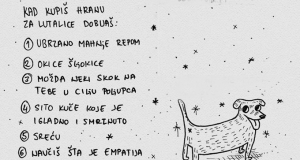 KAD KUPIŠ HRANU
ZA LUTALICE DOBIJAŠ:
1 UBRZANO MAHNJE REPOM
2 OKICE ŠLJOKICE
3 MOŽDA NEKI SKOK NA
TEBE U CILJU POLJUPCA
4 SITO KUČE KOJE JE
IGLADNO I SMRZNUTO
5 SREĆU
6 NAUČIŠ ŠTA JE EMPATIJA